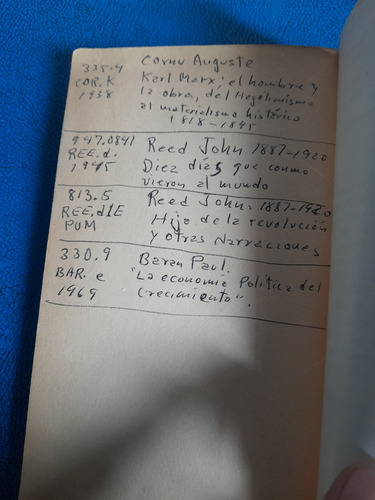 335.4 Cornu Auguste
COR.K Karl Marx; el hombre y
1938 la obra, del Hegelianismo
al materialismo histórico
1818-1845
947.0841 Reed John 1887-1920
REE.d. Diez días que conmo
1945 vieron al mundo
813.5 Reed John. 1887-1920
REE,d1E Hija de la revolución
PUM y otras Narraciones
330.9 Baran Paul.
BAR. e "La economia Politica del
1969 Crecimiento".